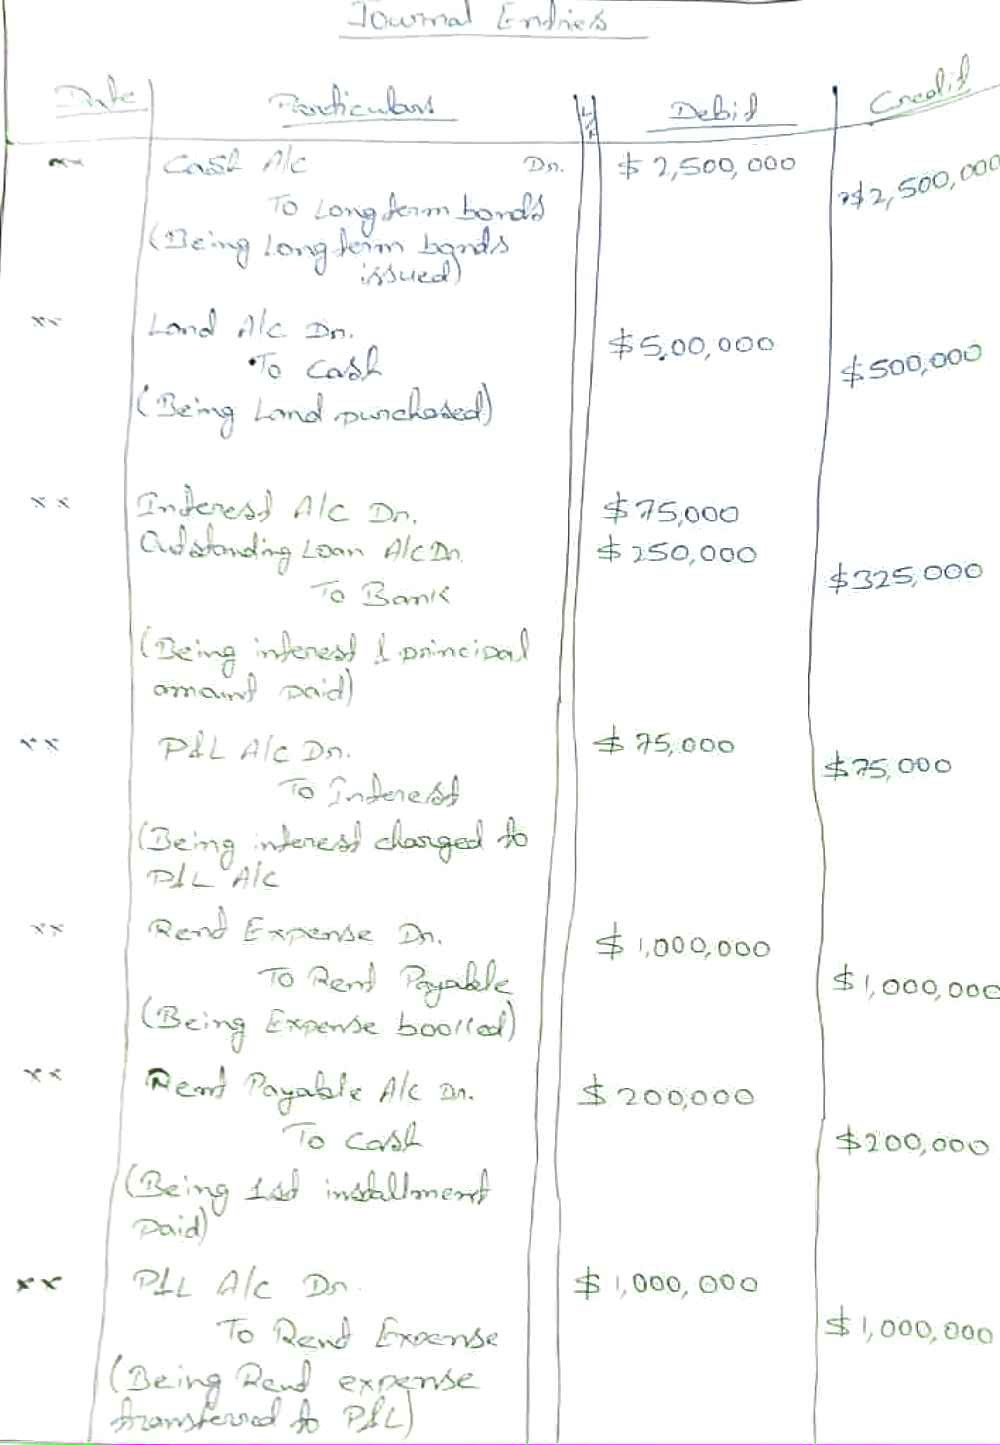 Journal Entries
Date Particulars L/F Debit Credit
xx Cash A/c Dr. $ 2,500,000
To Long term bonds $2,500,000
(Being Long term bonds
issued)
xx Land A/c Dr. $5,00,000
To Cash $500,000
(Being Land purchased)
xx Interest A/c Dr. $75,000
Outstanding Loan A/c Dr. $250,000
To Bank $325,000
(Being interest & principal
amount paid)
xx P&L A/c Dr. $75,000
To Interest $75,000
(Being interest charged to
P&L A/c
xx Rent Expense Dr. $1,000,000
To Rent Payable $1,000,000
(Being Expense booked)
xx Rent Payable A/c Dr. $200,000
To Cash $200,000
(Being 1st installment
paid)
xx P&L A/c Dr. $1,000,000
To Rent Expense $1,000,000
(Being Rent expense
transferred to P&L)